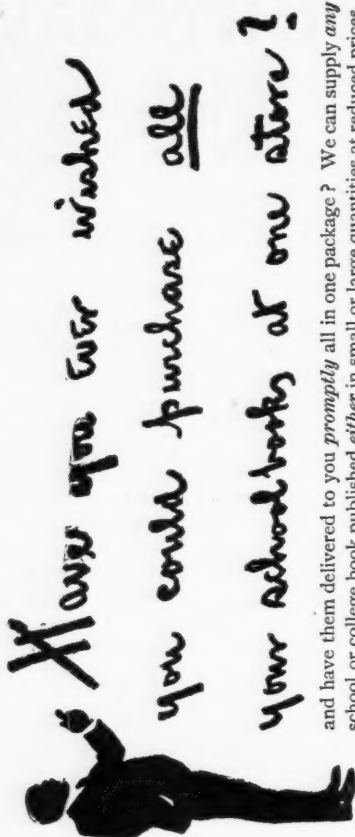 Have you ever wished
you could purchase all
your schoolbooks at one store?
and have them delivered to you promptly all in one package? We can supply any
school or college book published either in small or large quantities at reduced prices